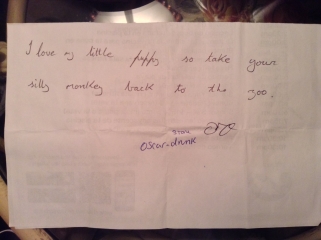 I love my little puppy so take your
silly monkey back to the zoo.
Oscar-drunk